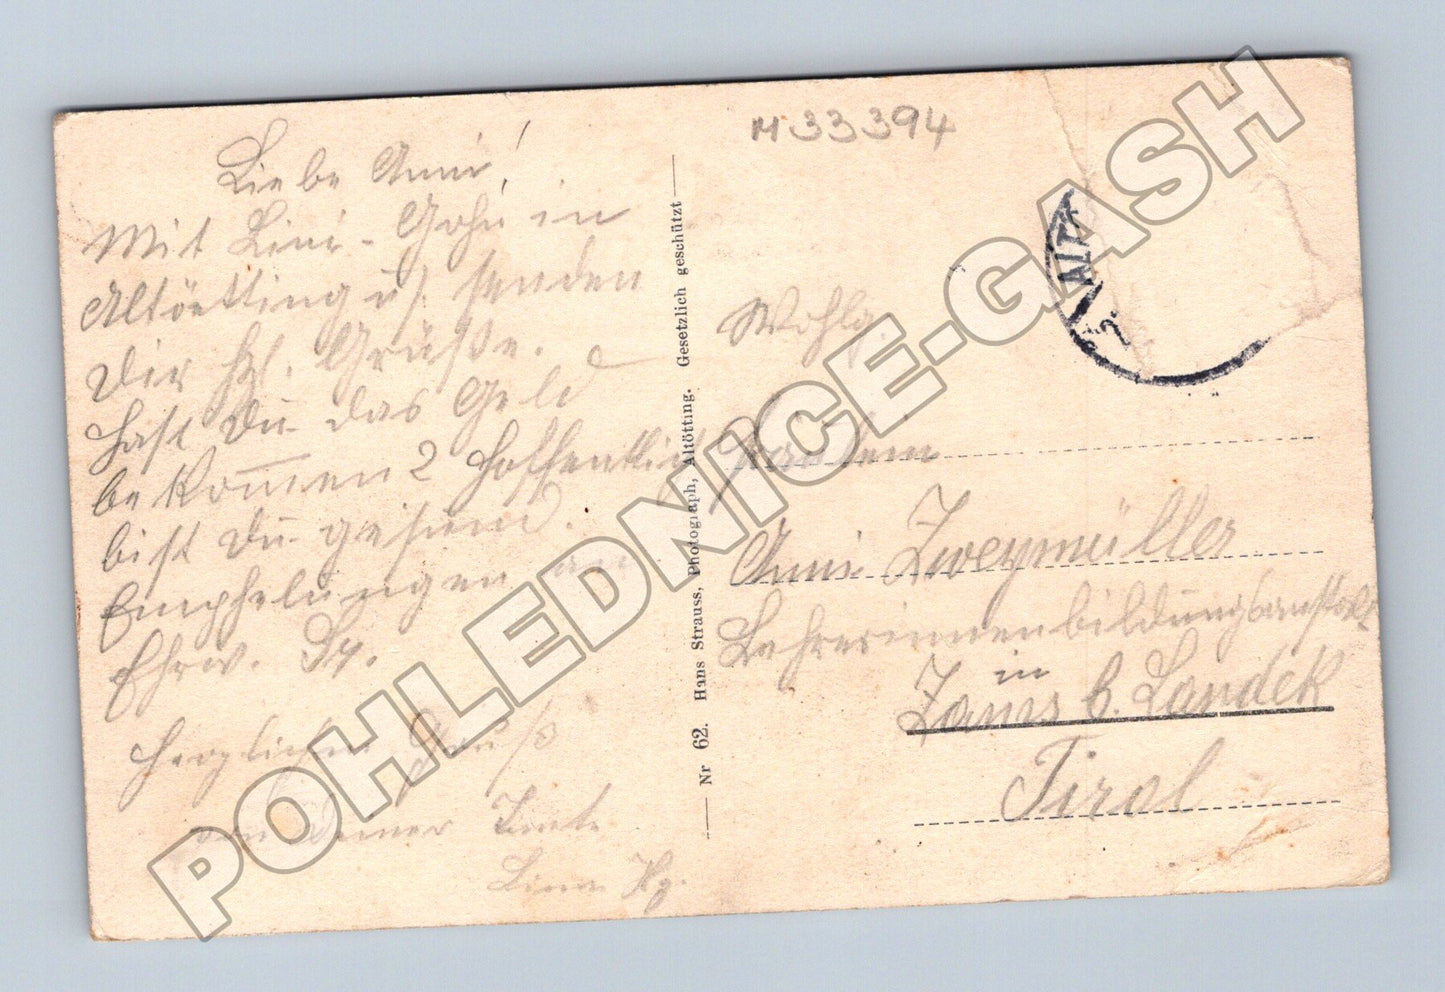 M33394
Liebe Anni!
Mit Lini - in
Altötting u. senden
Dir hzl. Grüße.
Hast Du das Geld
bekommen? Hoffentlich
bist Du gesund.
Empfehlungen an
Ehrw. Sr.
Herzlichen Gruß
von Deiner Tante
Lina
Nr 62. Hans Strauss, Photograph, Altötting. Gesetzlich geschützt
ALT
Wohlg.
Fräulein
Anni Zweymüller
Lehrerinnenbildungsanstalt
in
Zams b. Landek
Tirol
POHLEDNICE-GASH